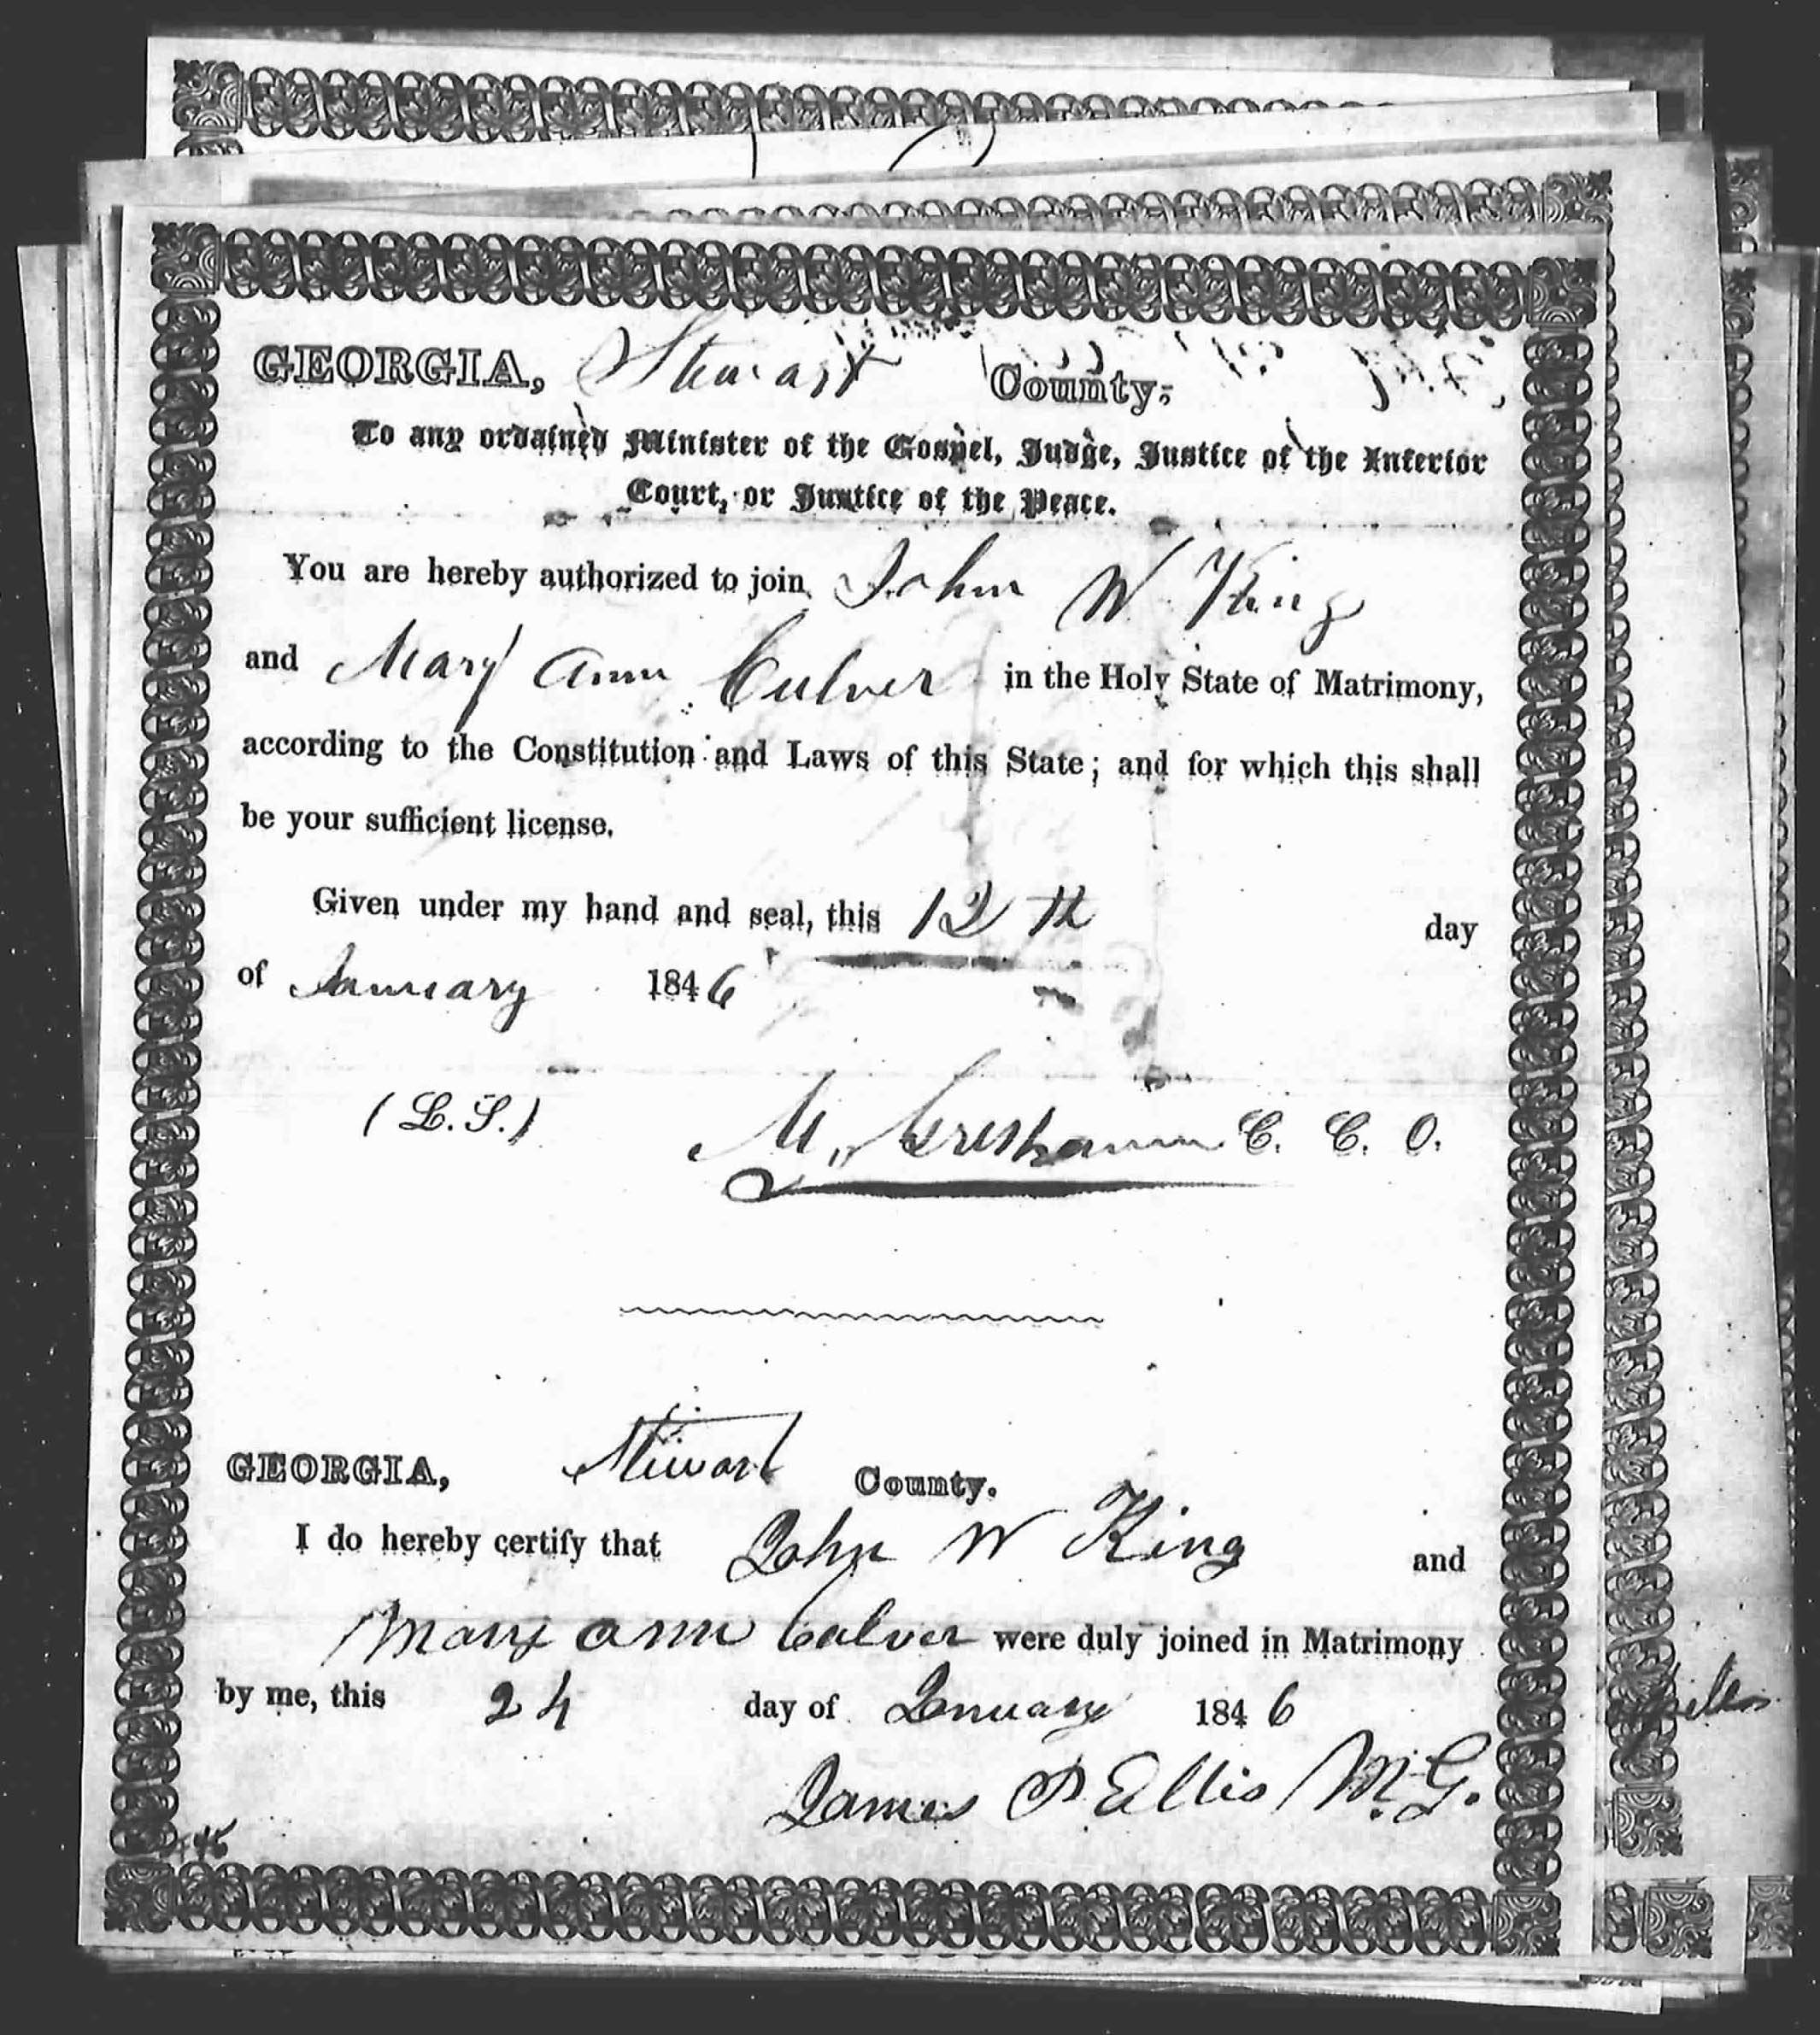 GEORGIA, Stewart County:
To any ordained Minister of the Gospel, Judge, Justice of the Inferior
Court, or Justice of the Peace.
You are hereby authorized to join John W. King
and Mary Ann Culver in the Holy State of Matrimony,
according to the Constitution and Laws of this State; and for which this shall
be your sufficient license.
Given under my hand and seal, this 12th day
of January 1846
(L.S.) M. Gresham C. C. O.
GEORGIA, Stewart County.
I do hereby certify that John W King and
Mary ann Culver were duly joined in Matrimony
by me, this 24 day of January 1846
James P Ellis M.G.